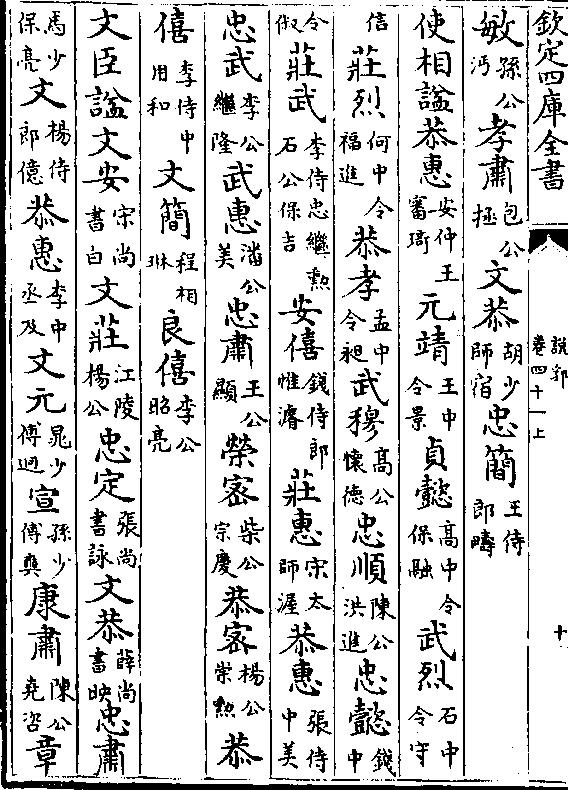 欽定四庫全書
說郛
卷四十一上
十
敏孫公沔孝肅包公拯文恭胡少師宿忠簡王侍郎疇
使相諡恭惠安仲王審琦元靖王中令景貞懿高中令保融武烈石中令守
信莊烈何中令福進恭孝孟中令昶武穆高公懷德忠順陳公洪進忠懿錢中
令俶莊武李侍忠繼勲石公保吉安僖錢侍郎惟濬莊惠宋太師渥恭惠張侍中美
忠武李公繼隆武惠潘公美忠肅王公顯榮密柴公宗慶恭密楊公崇勲恭
僖李侍中用和文簡程相琳良僖李公昭亮
文臣諡文安宋尚書白文莊江陵楊公忠定張尚書詠文恭薛尚書映忠肅
馬少保亮文楊侍郎億恭惠李中丞及文元晁少傅迥宣孫少傅奭康肅陳公堯咨章